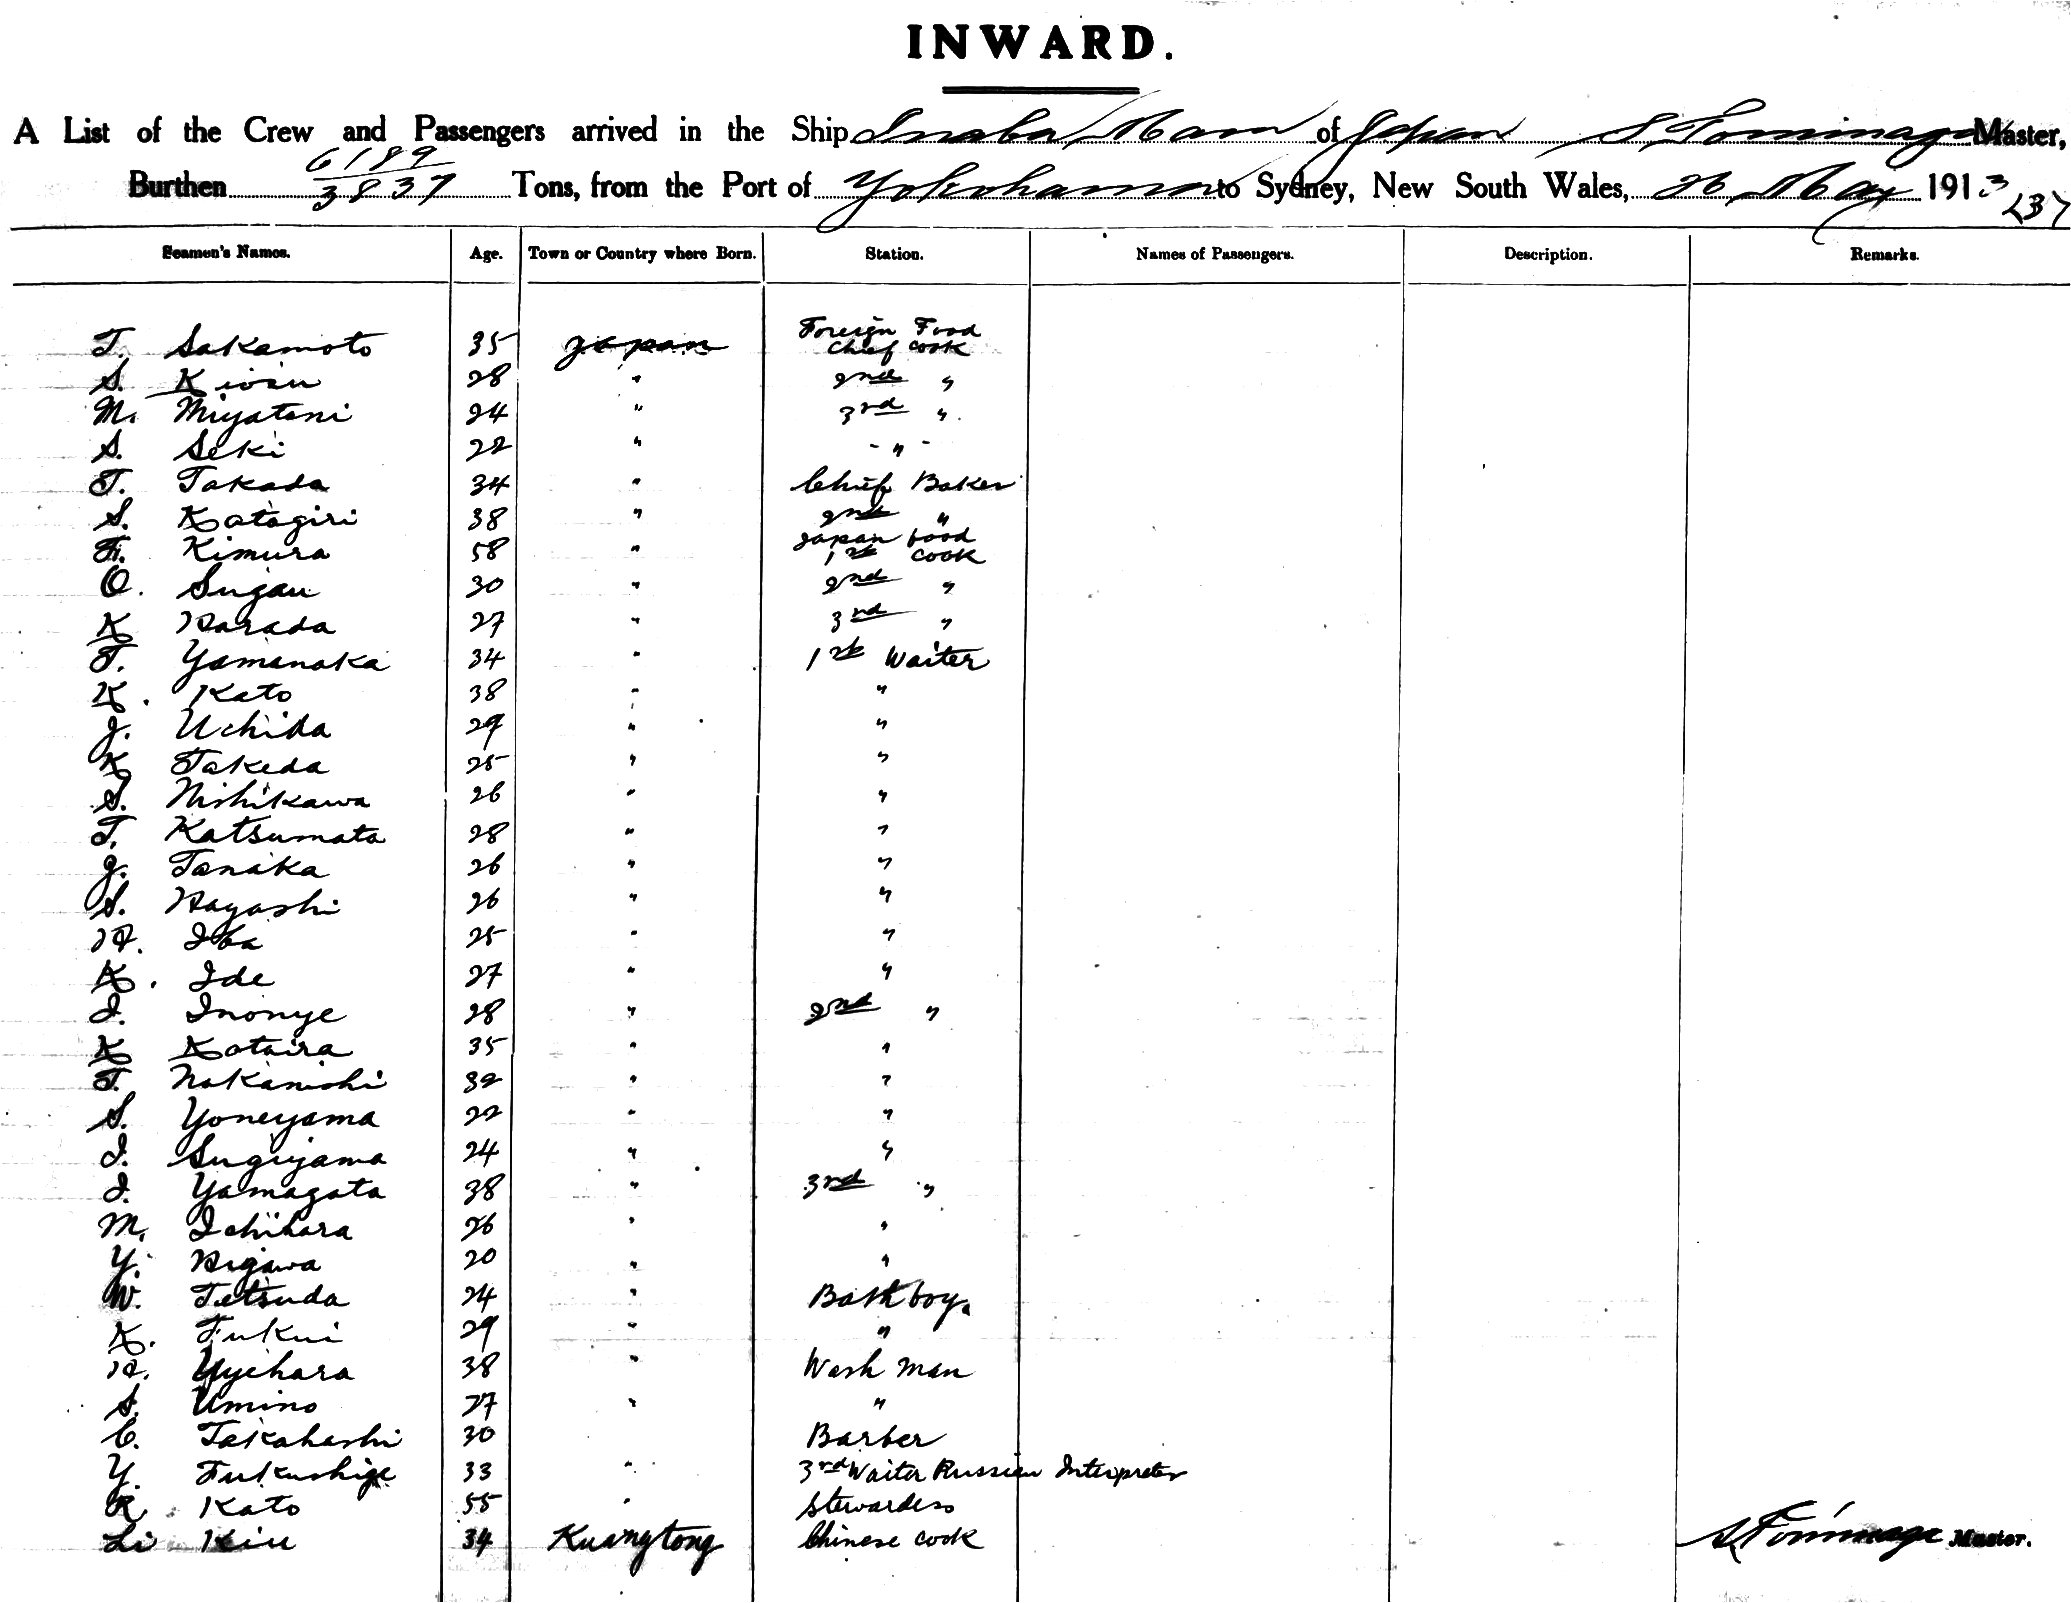 INWARD.
A List of the Crew and Passengers arrived in the Ship Inaba Maru of Japan S Tominaga Master,
Burthen 6189 / 3837 Tons, from the Port of Yokohama to Sydney, New South Wales, 26 May 1913 (37)
Seamen's Names. Age. Town or Country where Born. Station. Names of Passengers. Description. Remarks.
T. Sakamoto 35 Japan Foreign Food Chief Cook
S. 28 " 2nd "
M. Miyatani 24 " 3rd "
S. Seki 22 " - " -
T. Takada 34 " Chief Baker
S. Katagiri 38 " 2nd "
F. Kimura 58 " Japan food 1st Cook
O. Sugau 30 " 2nd "
K Harada 27 " 3rd "
T. Yamanaka 34 " 1st Waiter
K. Kato 38 " "
J. Uchida 29 " "
K Takeda 25 " "
S. Nishikawa 26 " "
T. Katsumata 28 " "
J. Tanaka 26 " "
S. Hayashi 26 " "
H. Iba 25 " "
K. Ide 27 " "
I. Inouye 28 " 2nd "
K Kataira 35 " "
T. Nakanishi 32 " "
S. Yoneyama 22 " "
I. Sugiyama 24 " "
I. Yamagata 38 " 3rd "
M. Ichihara 26 " "
Y. Higawa 20 " "
W. Tetsuda 24 " Bath boy.
K. Fukui 29 " "
H. Uyehara 38 " Wash man
S. Umino 27 " "
C. Takahashi 30 Barber
Y. Fukushige 33 " 3rd Waiter Russian Interpreter
R. Kato 55 " Stewardess
Li Kiu 34 Kuangtong Chinese cook
S Tominaga Master.